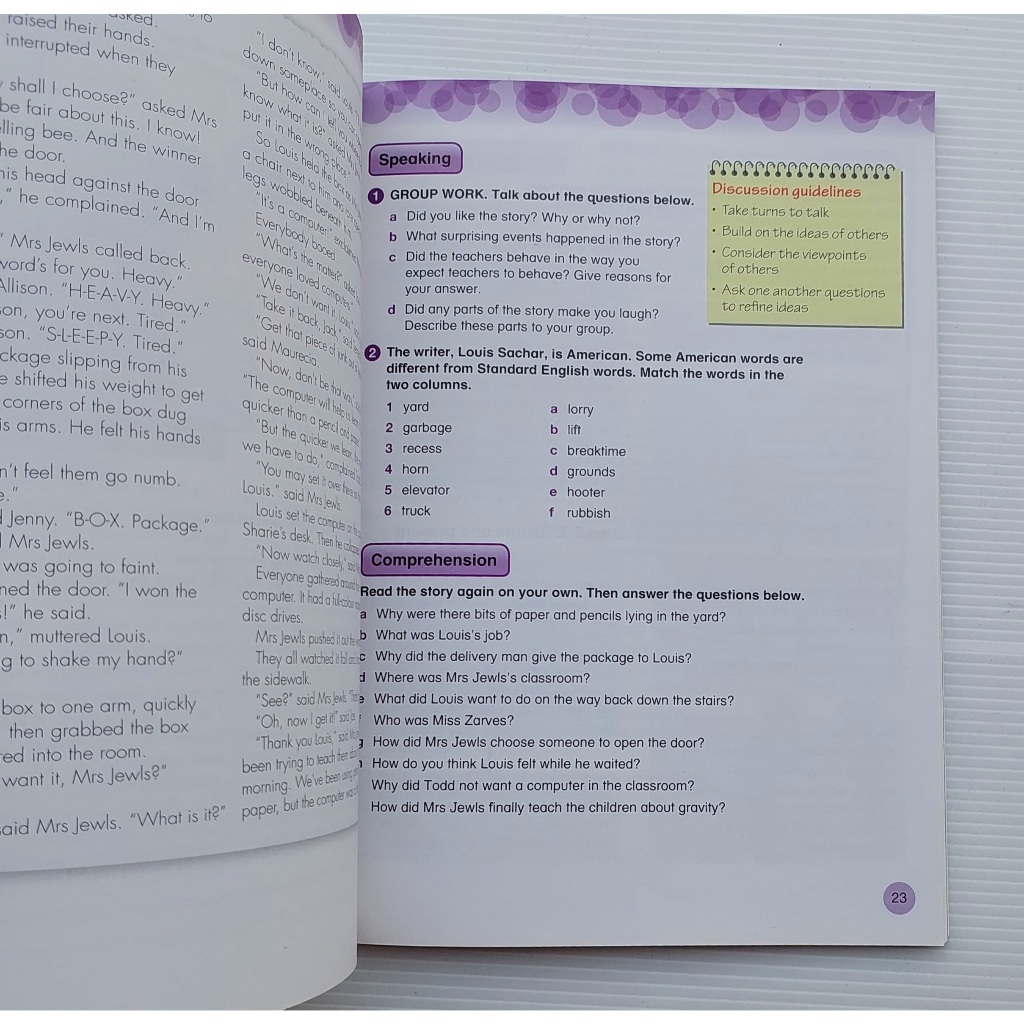 asked.
raised their hands.
interrupted when they
shall I choose?" asked Mrs
be fair about this. I know!
lling bee. And the winner
he door.
his head against the door
," he complained. "And I'm
" Mrs Jewls called back.
word's for you. Heavy."
Allison. "H-E-A-V-Y. Heavy."
son, you're next. Tired."
son. "S-L-E-E-P-Y. Tired."
ckage slipping from his
e shifted his weight to get
corners of the box dug
is arms. He felt his hands
n't feel them go numb.
e."
Jenny. "B-O-X. Package."
Mrs Jewls.
was going to faint.
ned the door. "I won the
!" he said.
n," muttered Louis.
g to shake my hand?"
box to one arm, quickly
then grabbed the box
red into the room.
want it, Mrs Jewls?"
said Mrs Jewls. "What is it?"
"I don't know," said
down someplace so
"But how can I tell you
know what it is?" asked
put it in the wrong place."
So Louis held the box
a chair next to him and
legs wobbled beneath
"It's a computer!"
Everybody booed.
"What's the matter?"
everyone loved computers."
"We don't want it, Louis,"
"Take it back, Jack,"
"Get that piece of junk
said Maurecia.
"Now, don't be that way,"
"The computer will help us learn
quicker than a pencil and paper
"But the quicker we learn,
we have to do," complained
"You may set it over there
Louis," said Mrs Jewls.
Louis set the computer on the
Sharie's desk. Then he collapsed
"Now watch closely,"
Everyone gathered around
computer. It had a full-colour
disc drives.
Mrs Jewls pushed it out the
They all watched it fall and
the sidewalk.
"See?" said Mrs Jewls.
"Oh, now I get it!" said Joe.
"Thank you Louis," said Mrs
been trying to teach them
morning. We've been using
paper, but the computer was
Speaking
1 GROUP WORK. Talk about the questions below.
a Did you like the story? Why or why not?
b What surprising events happened in the story?
c Did the teachers behave in the way you
expect teachers to behave? Give reasons for
your answer.
d Did any parts of the story make you laugh?
Describe these parts to your group.
Discussion guidelines
• Take turns to talk
• Build on the ideas of others
• Consider the viewpoints
of others
• Ask one another questions
to refine ideas
2 The writer, Louis Sachar, is American. Some American words are
different from Standard English words. Match the words in the
two columns.
1 yard a lorry
2 garbage b lift
3 recess c breaktime
4 horn d grounds
5 elevator e hooter
6 truck f rubbish
Comprehension
Read the story again on your own. Then answer the questions below.
a Why were there bits of paper and pencils lying in the yard?
b What was Louis's job?
c Why did the delivery man give the package to Louis?
d Where was Mrs Jewls's classroom?
e What did Louis want to do on the way back down the stairs?
Who was Miss Zarves?
g How did Mrs Jewls choose someone to open the door?
How do you think Louis felt while he waited?
Why did Todd not want a computer in the classroom?
How did Mrs Jewls finally teach the children about gravity?
23